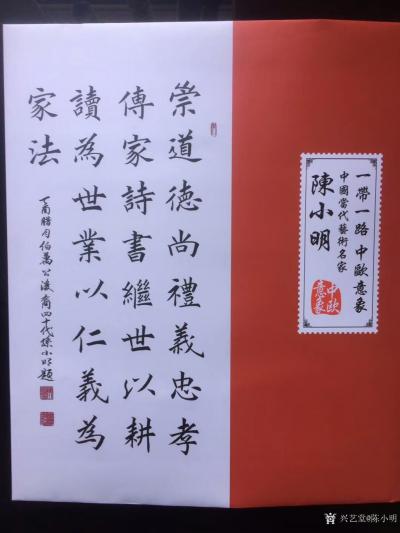 崇道德尚禮義忠孝
傳家詩書繼世以耕
讀為世業以仁義為
家法
丁酉腊月伯萬公後裔四十代孫小明題
一帶一路 中歐意象
中國當代藝術名家
陳小明
中歐
意象
兴艺堂@陈小明